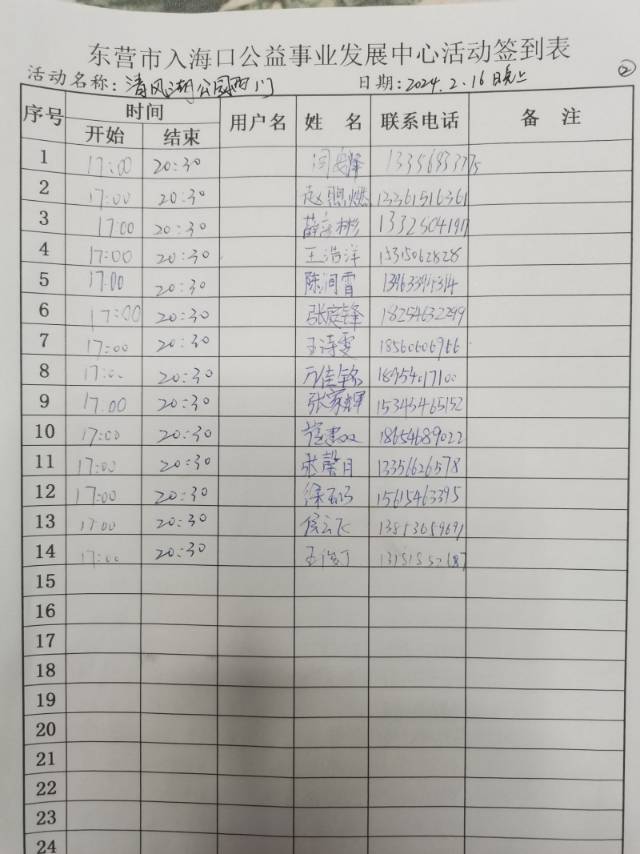 东营市入海口公益事业发展中心活动签到表
活动名称：清风湖公园西门 日期：2024.2.16日晚上 ②
序号 时间 用户名 姓 名 联系电话 备 注
开始 结束
1 17:00 20:30
2 17:00 20:30 13361516361
3 17:00 20:30 薛彦彬
4 17:00 20:30 王浩洋 15315062828
5 17:00 20:30 陈润霄
6 17:00 20:30 张庭锋 18254632299
7 17:00 20:30 王诗雯 18560606966
8 17:00 20:30
9 17:00 20:30 张家辉 15343465152
10 17:00 20:30 18654689022
11 17:00 20:30 张馨月 13356626578
12 17:00 20:30 15615463395
13 17:00 20:30 侯云飞
14 17:00 20:30
15
16
17
18
19
20
21
22
23
24